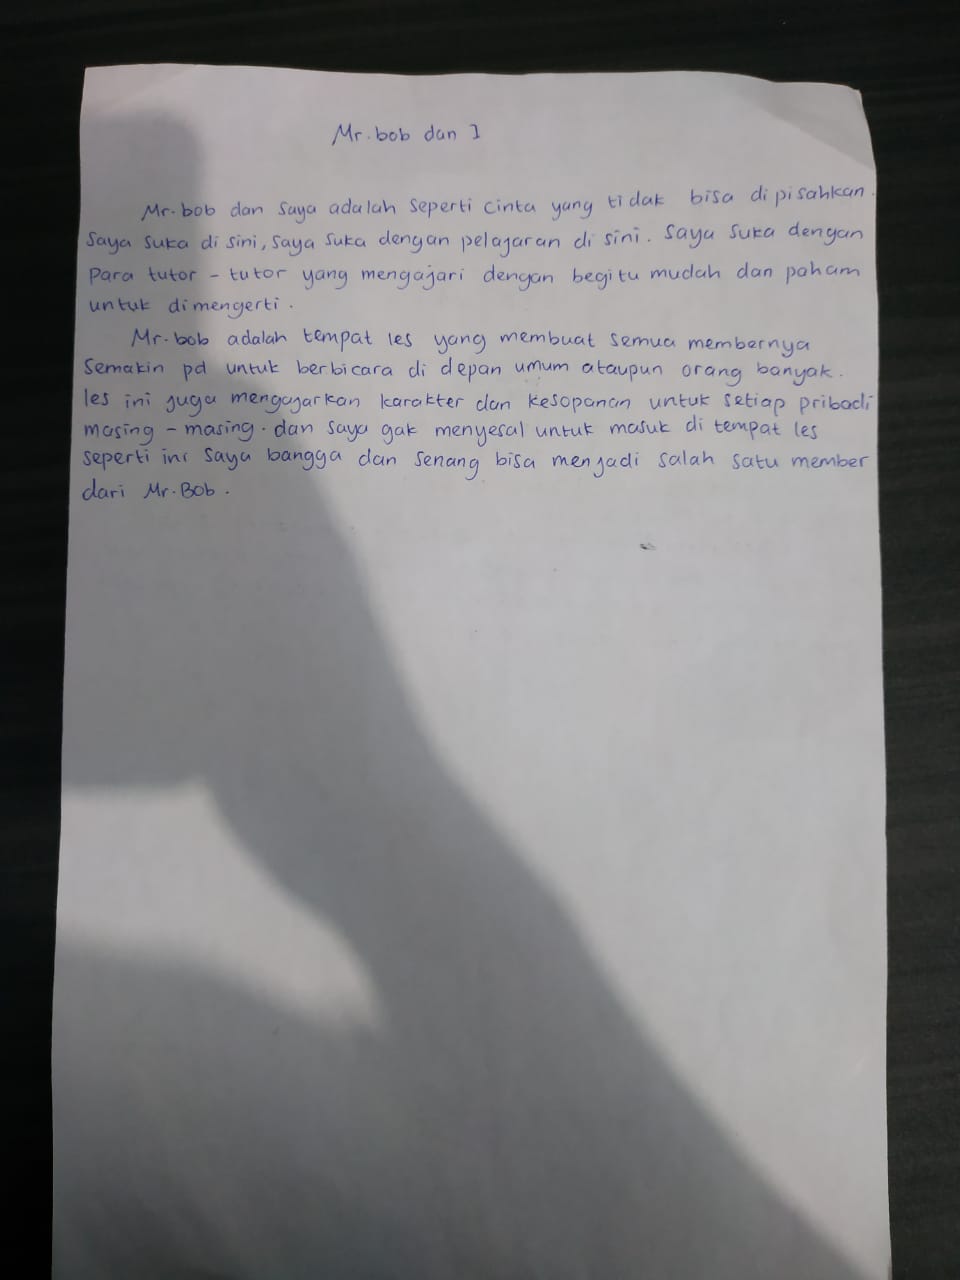 Mr. bob dan I
Mr. bob dan saya adalah seperti cinta yang tidak bisa dipisahkan.
Saya suka di sini, saya suka dengan pelajaran di sini. Saya suka dengan
para tutor - tutor yang mengajari dengan begitu mudah dan paham
untuk dimengerti.
Mr. bob adalah tempat les yang membuat semua membernya
Semakin pd untuk berbicara di depan umum ataupun orang banyak.
les ini juga mengajarkan karakter dan kesopanan untuk setiap pribadi
masing - masing. dan saya gak menyesal untuk masuk di tempat les
seperti ini saya bangga dan senang bisa menjadi salah satu member
dari Mr. Bob.